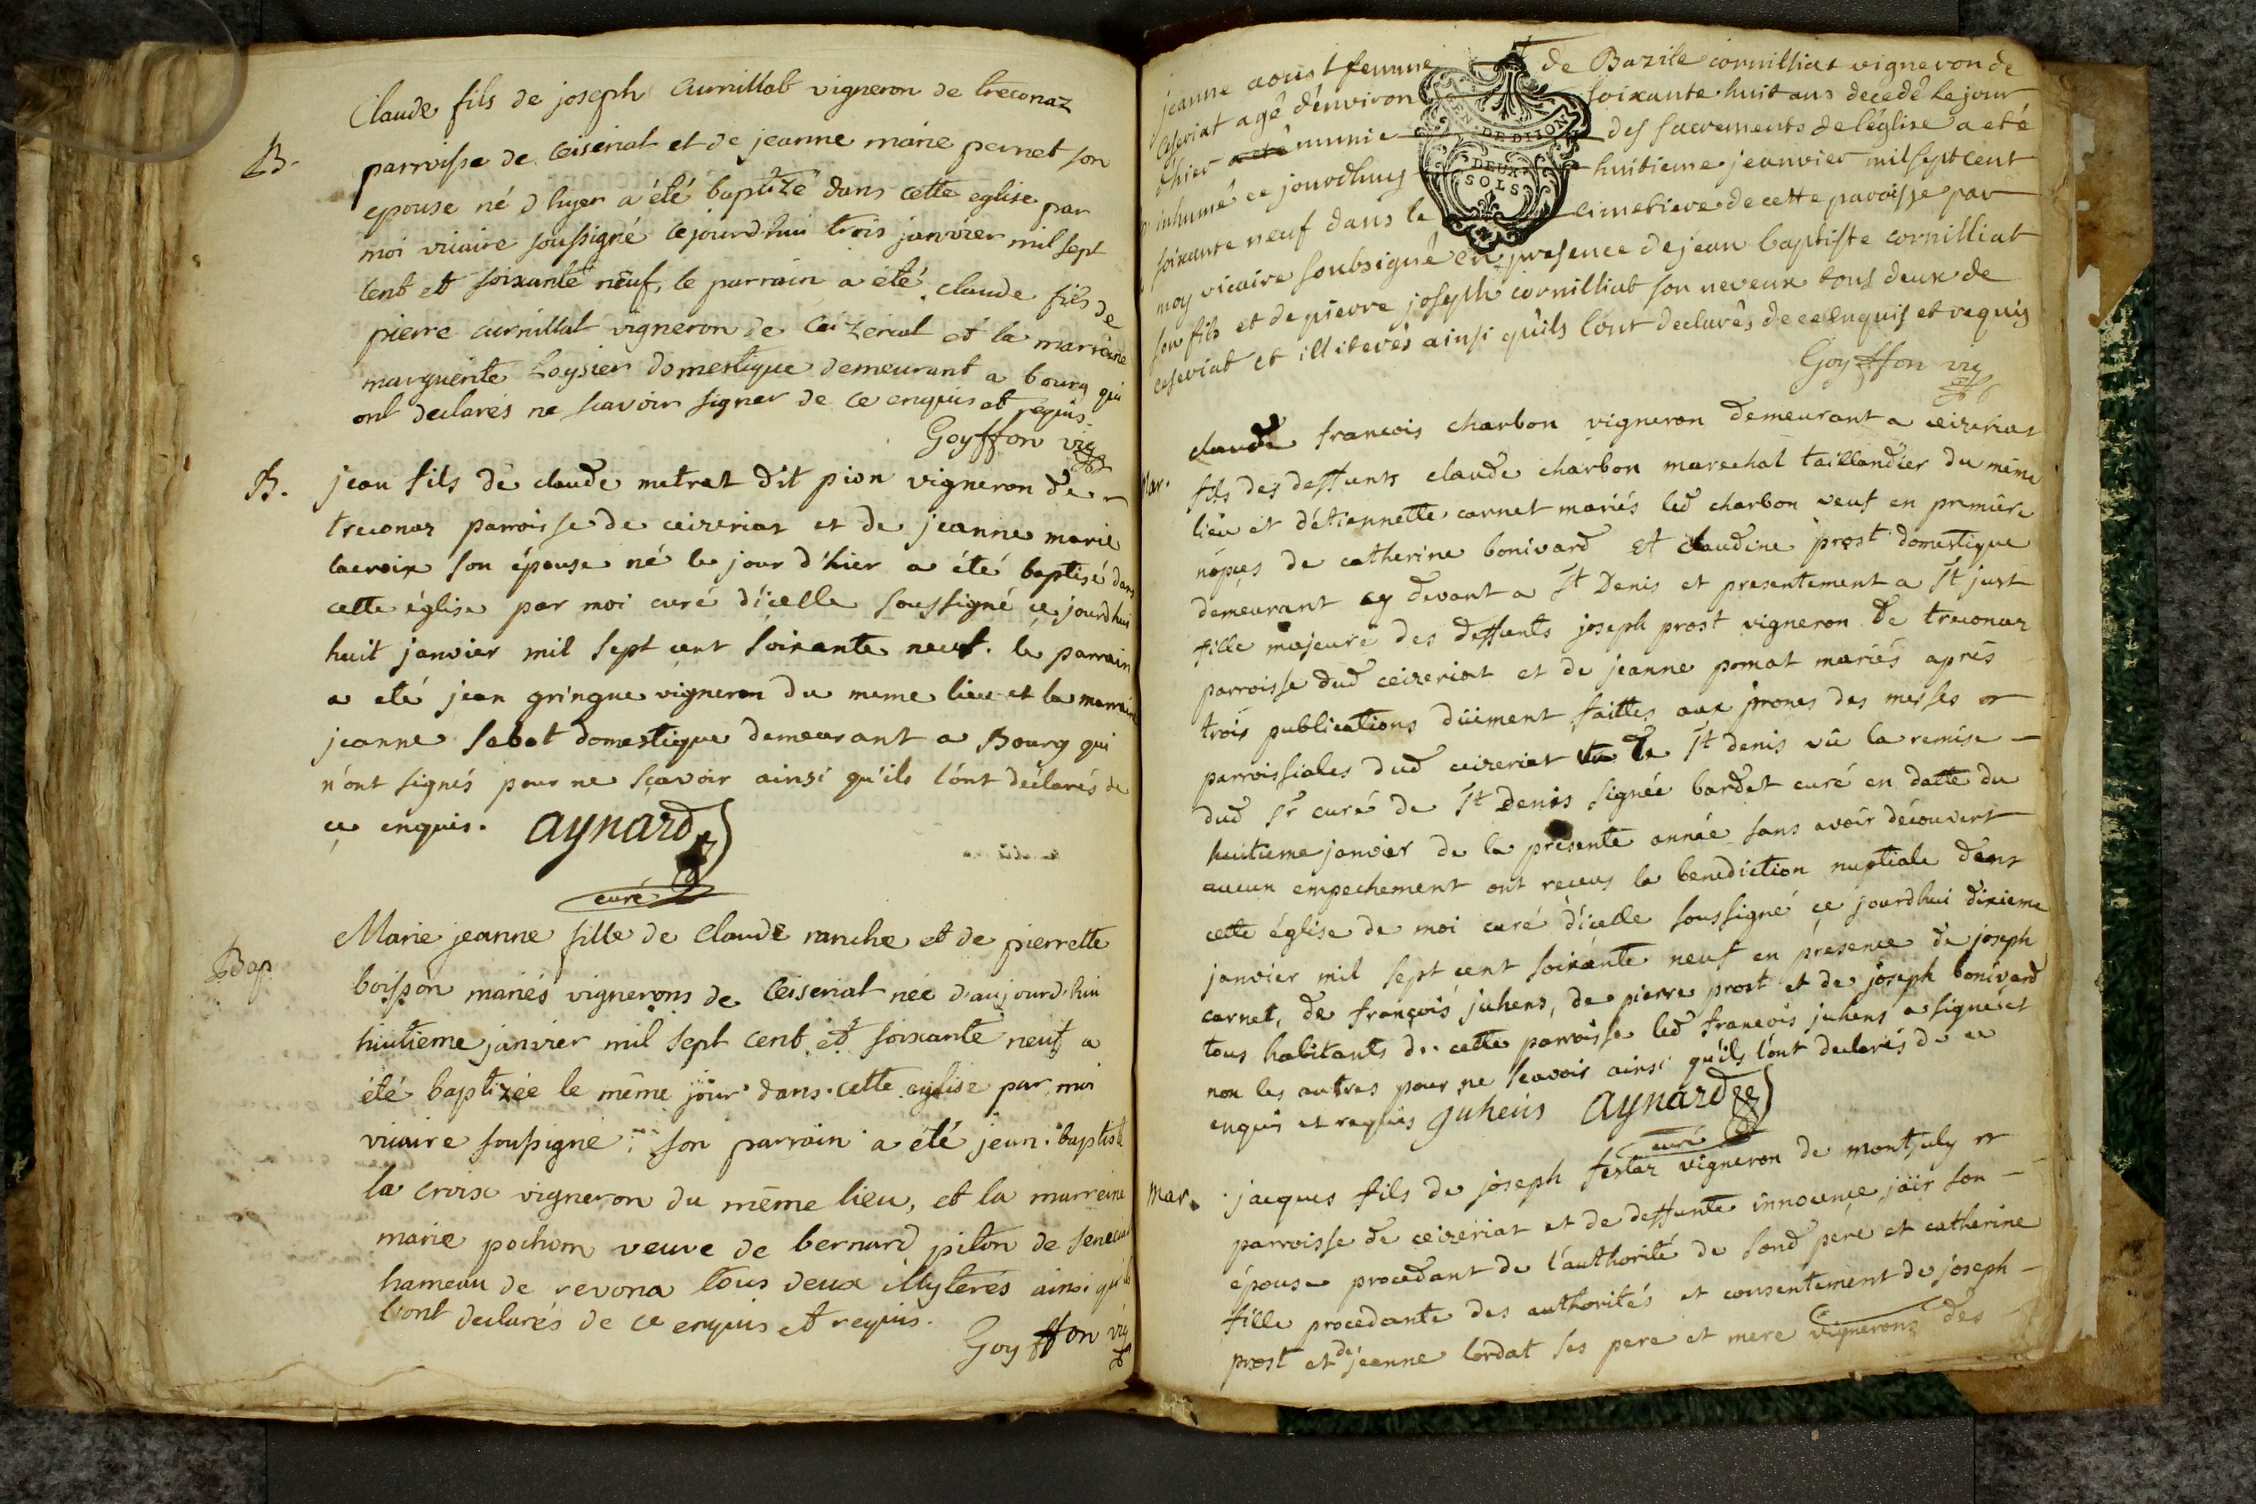 Claude fils de joseph Curnillat vigneron de treconaz
B. parroisse de Ceiseriat et de jeanne marie pernet son
epouse né d hyer a été baptizé dans cette eglise par
moi vicaire soussigné cejourd'hui trois janvier mil sept
cent et soixante neuf, le parrain a été claude fils de
pierre curnillat vigneron de Ceizeriat et la marreine
marguerite Loysier domestique demeurant a bourg qui
ont declarés ne scavoir signer de ce enquis et requis.
Goyffon vic
B. jean fils de claude metrat dit pion vigneron de
treconas parroisse de ceizeriat et de jeanne marie
lacroix son épouse né le jour d'hier a été baptisé dans
cette église par moi curé d'icelle soussigné ce jourdhui
huit janvier mil sept cent soixante neuf. le parrain
a eté jean gringue vigneron du meme lieu et la marraine
jeanne sabot domestique demeurant a Bourg qui
n'ont signés pour ne sçavoir ainsi qu'ils l'ont déclarés de
ce enquis. aynard
curé
Marie jeanne fille de Claude ranche et de pierrette
Bap boisson mariés vignerons de Ceiseriat née d'aujourd'hui
huitieme janvier mil sept cent et soixante neuf a
été baptizée le même jour dans cette eglise par moi
vicaire soussigné son parrain a été jean baptiste
la croix vigneron du même lieu, et la marreine
marie pochon veuve de bernard piton de
hameau de revona tous deux illyterés ainsi qu'ils
l'ont declarés de ce enquis et requis.
Goyffon vic
jeanne aoust femme de Bazile cornilliat vigneron de
Ceseriat agé d'environ soixante huit ans decedé le jour
d'hier a eté munie des sacrements de l'église a eté
inhumé ce jourdhuy huitieme jeanvier mil sept cent
soixante neuf dans le cimetiere de cette paroisse par
GEN. DE DIJON
DEUX
SOLS
moy vicaire soubsigné en presence de jean baptiste cornilliat
son fils et de pierre joseph cornilliat son neveux tous deux de
ceseriat et illiterés ainsi qu'ils l'ont declarés de ce enquis et requis
Goyffon vic
claude francois charbon vigneron demeurant a ceizeriat
Mar. fils des deffunts claude charbon marechal taillandier du même
lieu et d'étiennette carnet mariés led charbon veuf en premiere
nopces de catherine bonivard et claudine prost domestique
demeurant cy devant a St Denis et presentement a St just
fille majeure des deffunts joseph prost vigneron de treconas
parroisse dud ceizeriat et de jeanne pomat mariés aprés
trois publications düement faittes aux prones des messes
parroissiales dud ceizeriat de St denis vû la remise
dud Sr curé de St Denis signée bardet curé en datte du
huitieme janvier de la présente année sans avoir découvert
aucun empechement ont receus la benediction nuptiale dans
cette église de moi curé d'icelle soussigné ce jourdhui dixieme
janvier mil sept cent soixante neuf en présence de joseph
carnet, de françois juhens, de pierre prost et de joseph bonivard
tous habitants de cette parroisse led francois juhens a signé et
non les autres pour ne scavoir ainsi qu'ils l'ont declarés de ce
enquis et requis juheus aynard
curé
Mar. jacques fils de joseph festaz vigneron de montjuly
parroisse de ceizeriat et de deffunte innocence jair son
épouse procedant de l'authorité de sond pere et catherine
fille procedante des authorités et consentement de joseph
prost et de jeanne lordat ses pere et mere vignerons des